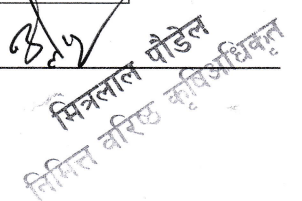 मित्रलाल पौडेल
निमित्त वरिष्ठ कृषि अधिकृत